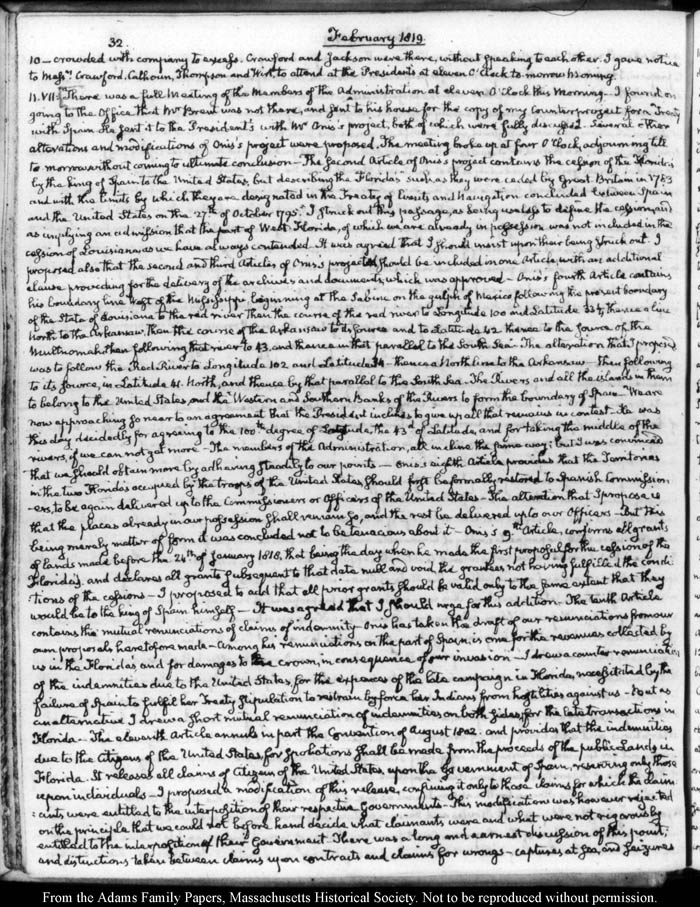 32
February 1819.
10 — crowded with company to excess. Crawford and Jackson were there, without speaking to each other. I gave notice
to Messrs. Crawford, Calhoun, Thompson and Wirt to attend at the Presidents at eleven O'Clock to morrow morning.
11. VII: There was a full Meeting of the Members of the Administration at eleven O'Clock this Morning — I found on
going to the Office that Mr. Brent was not there, and sent to his house for the copy of my Counterproject for a Treaty
with Spain. He sent it to the President's with Mr. Onis's project, both of which were fully discussed. Several other
alterations and modifications of Onis's project were proposed. The meeting broke up at four O'Clock, adjourning till
to morrow without coming to ultimate conclusion — The second Article of Onis's project contains the cession of the Floridas
by the king of Spain to the United States, but describing the Floridas "such as they were ceded by Great Britain in 1783
and with the limits by which they are designated in the Treaty of Limits and Navigation concluded between Spain
and the United States on the 27th of October 1795." I struck out this passage, as being useless to define the cession, and
as implying an admission that the part of West-Florida, of which we are already in possession was not included in the
cession of Louisiana as we have always contended. It was agreed that I should insist upon their being struck out. I
proposed also that the second and third Articles of Onis's project should be included in one Article, with an additional
clause providing for the delivery of the archives and documents, which was approved — Onis's fourth Article contains
his boundary line West of the Mississippi, beginning at the Sabine on the gulph of Mexico following the West boundary
of the State of Louisiana to the red river Then the course of the red river to Longitude 100 and Latitude 33¼, thence a line
North to the Arkansaw, then the course of the Arkansaw to its source and to Latitude 42 thence to the source of the
Multnomah, then following that river to 43. and thence in that parallel to the South Sea — The alteration that I proposed
was to follow the Red River to Longitude 102 and Latitude 34 — thence a North line to the Arkansaw — then following
to its source, in Latitude 41. North, and thence by that parallel to the South Sea — The Rivers and all the islands in them
to belong to the United States, and the Western and Southern Banks of the Rivers to form the boundary of Spain — We are
now approaching so near to an agreement that the President inclines to give up all that remains in contest. He was
this day decidedly for agreeing to the 100th degree of Longitude, the 43d of Latitude, and for taking the middle of the
rivers, if we can not get more — The members of the Administration, all incline the same way; but I was convinced
that we should obtain more by adhering steadily to our points — Onis's eighth Article provides that the Territories
in the two Floridas occupied by the troops of the United States, should first be formally restored to Spanish Commission-
ers, to be again delivered up to the Commissioners or Officers of the United States — The alteration that I propose is
that the places already in our possession shall remain so, and the rest be delivered up to our Officers — But this
being merely matter of form it was concluded not to be tenacious about it — Onis's 9th Article, confirms all grants
of lands made before the 24th of January 1818, that being the day when he made the first proposal for the cession of the
Floridas, and declares all grants subsequent to that date null and void the grantees not having fulfilled the condi-
tions of the cessions — I proposed to add that all prior grants should be valid only to the same extent that they
would be to the king of Spain himself — It was agreed that I should urge for this addition. The tenth Article
contains the mutual renunciations of claims of indemnity. Onis has taken the draft of our renunciations from our
own proposals heretofore made — Among his renunciations on the part of Spain, is one for the revenues collected by
us in the Floridas, and for damages to the crown, in consequence of our invasion — I drew a counter-renunciation
of the indemnities due to the United States, for the expences of the late campaign in Florida, necessitated by the
failure of Spain to fulfil her Treaty stipulation to restrain by force her Indians from hostilities against us — But as
an alternative I drew a short mutual renunciation of indemnities on both sides, for the late transactions in
Florida — The eleventh Article annuls in part the Convention of August 1802. and provides that the indemnities
due to the citizens of the United States, for spoliations shall be made from the proceeds of the public Lands in
Florida. It releases all claims of citizens of the United States, upon the Government of Spain, reserving only those
upon individuals — I proposed a modification of this release, confining it only to those claims for which the claim
:ants were entitled to the interposition of their respective Governments — This modification was however rejected
on the principle that we could not before hand decide what claimants were and what were not rigorously
entitled to the interposition of their Government. There was a long and earnest discussion of this point,
and distinctions taken between claims upon contracts and claims for wrongs — captures at sea, and seizures
From the Adams Family Papers, Massachusetts Historical Society. Not to be reproduced without permission.